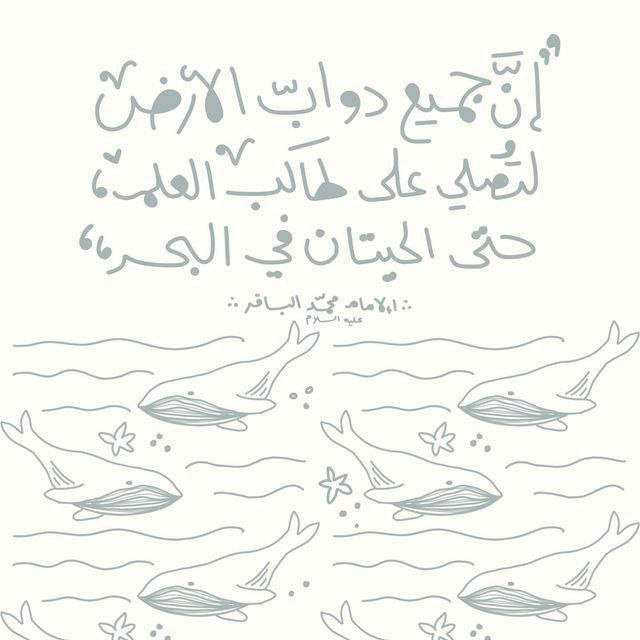 ”إنَّ جميع دوابّ الأرض
لتُصلي على طالَب العلم،
حتى الحيتان في البحر“
:· الإمام محمّد الباقر ·:
عليه السلام